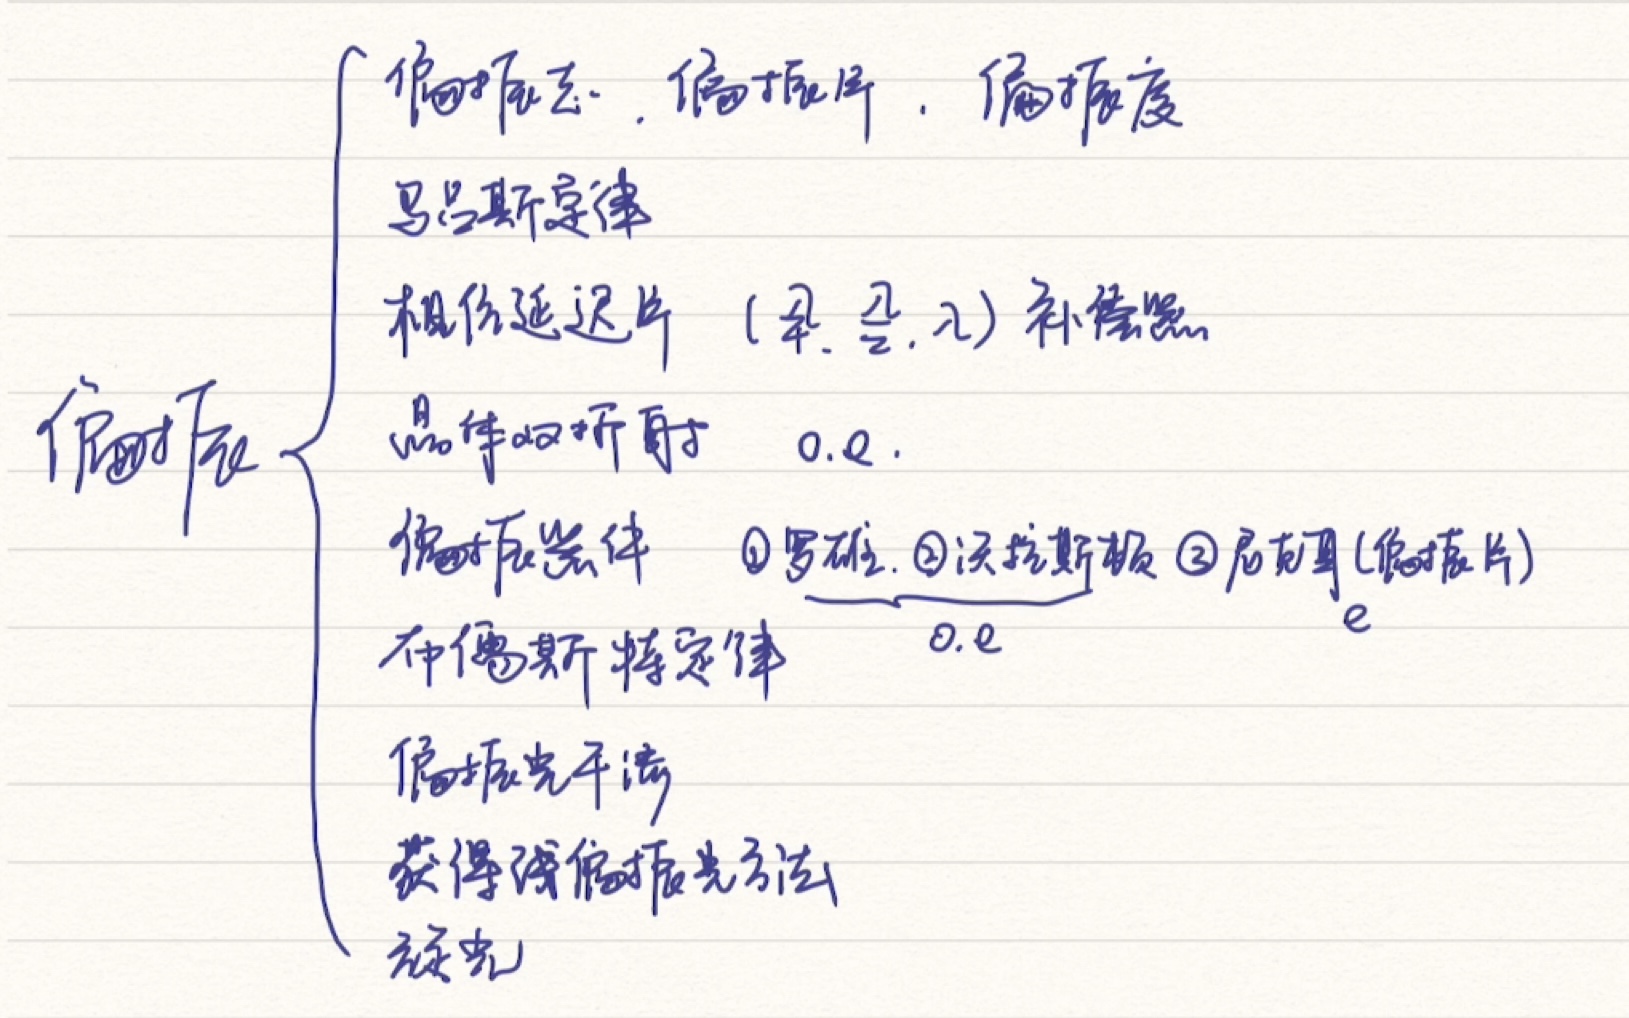 偏振态、偏振片、偏振度
马吕斯定律
相位延迟片 (λ/4、λ/2、λ) 补偿器
晶体双折射 o.e.
偏振
偏振器件 ①罗雄、②沃拉斯顿 ③尼克耳(偏振片)
o.e e
布儒斯特定律
偏振光干涉
获得线偏振光方法
旋光